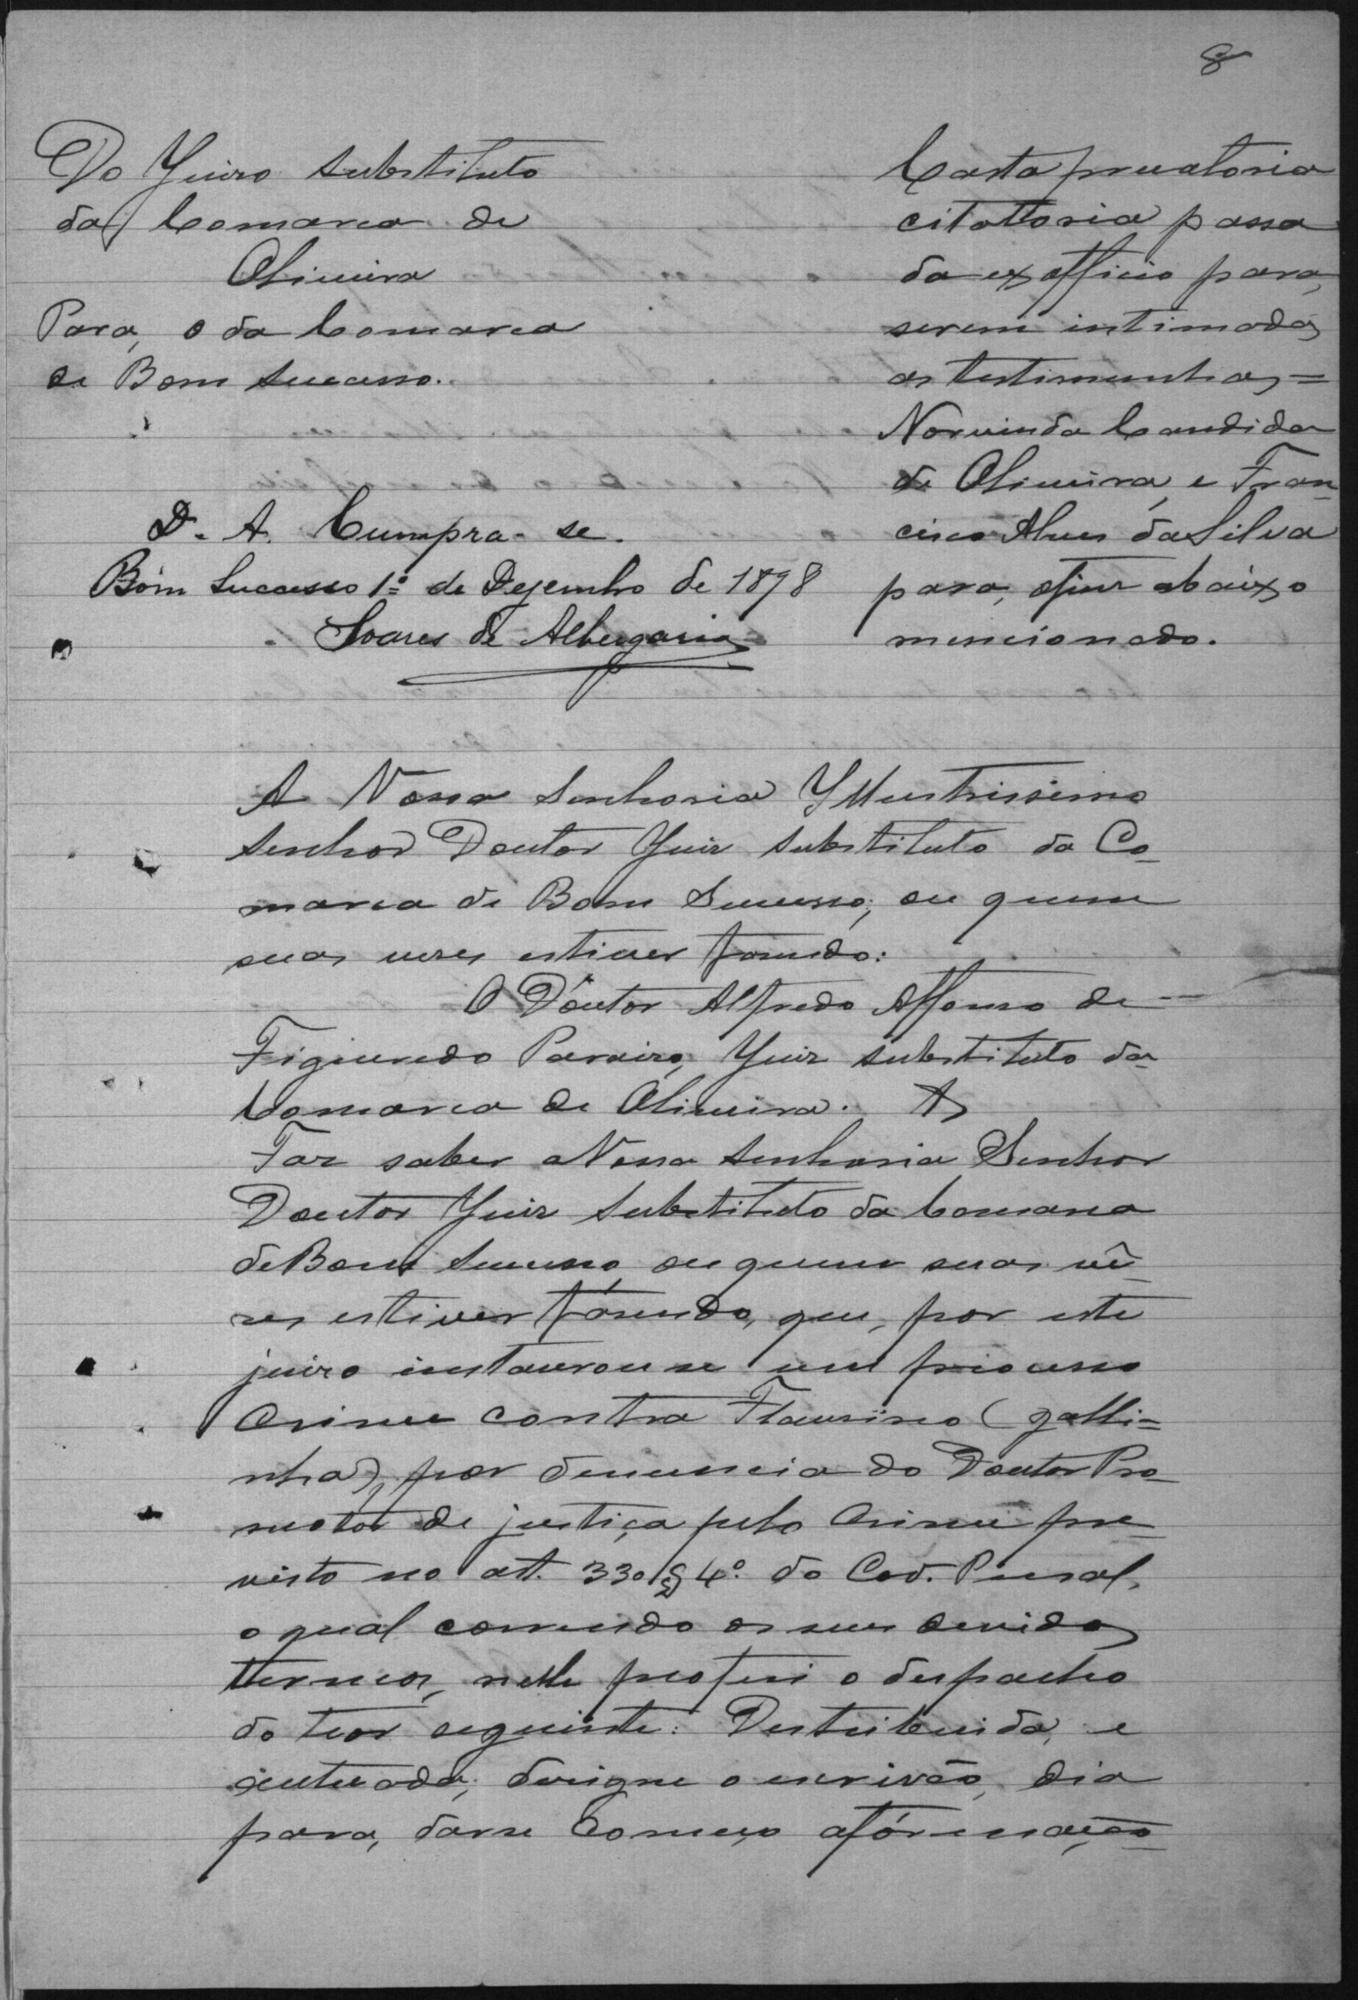 8
Do Juizo Substituto
da Comarca de
Oliveira
Para, o da Comarca
de Bom Sucesso.
D. A. Cumpra-se.
Bom Sucesso 1º de Dezembro de 1898
Soares de Albergaria
Carta precatoria
citattoria passa
da ex officio para,
serem intimadas
as testimunhas=
Norvinda Candida
de Oliveira, e Fran-
cisco Alves da Silva
para, ofim abaixo
mencionado.
A Vossa Senhoria Illustrissimo
Senhor Doutor Juiz Substituto da Co-
marca de Bom Sucesso, ou quem
suas vezes estiver fasendo:
O Doutor Alfredo Affonso de
Figueiredo Juiz substituto da
Comarca de Oliveira.
Faz saber a Vossa Senhoria Senhor
Doutor Juiz Substituto da Comarca
de Bom Sucesso, ou quem suas vê-
zes estiver fásendo, que, por este
juizo instaurou se um processo
Crime contra Flausino (galli=
nha), por denuncia do Doutor Pro-
motor de justiça pelo Crime pre-
visto no art. 330 § 4º do Cod. Penal,
o qual correndo os seus devidos
termos, nelle proferi o despacho
do teor seguinte: Destribuida, e
autuada, designe o escrivão, dia
para, darse Começo afórmação